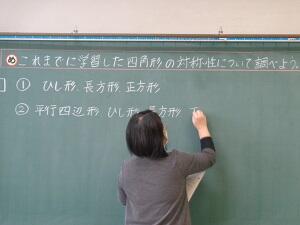 め これまでに学習した四角形の対称性について調べよう。
① ひし形、長方形、正方形
② 平行四辺形、ひし形、長方形、正